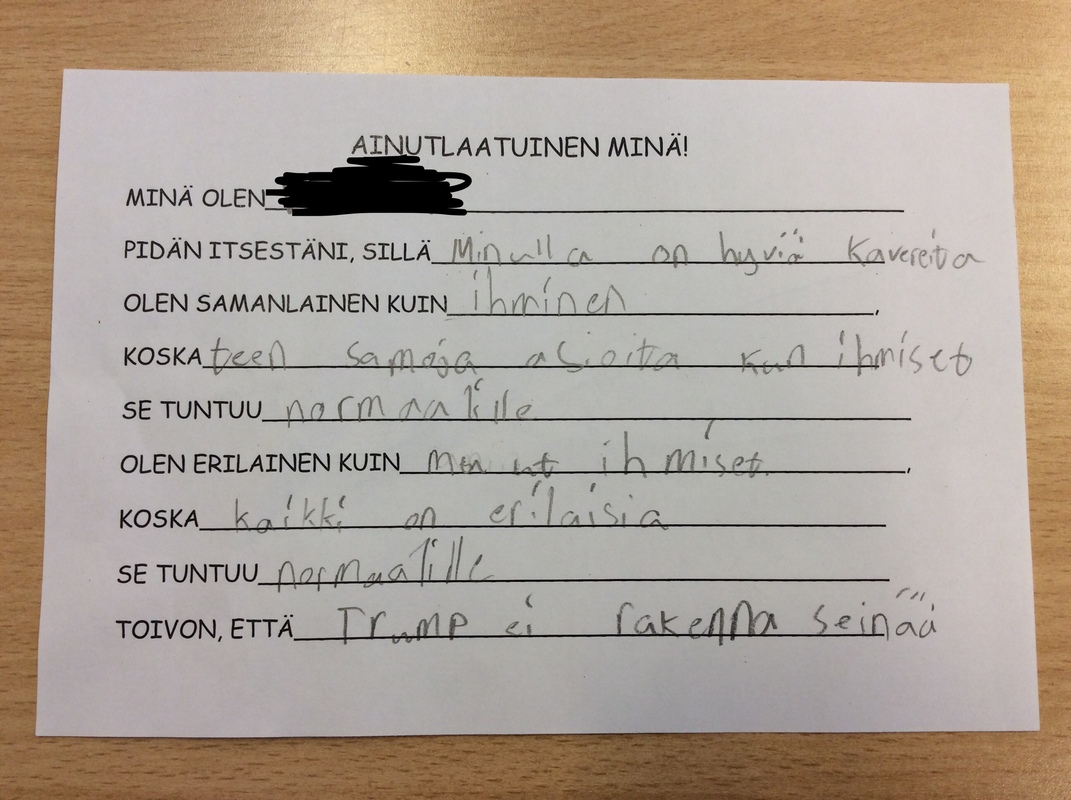 AINUTLAATUINEN MINÄ!
MINÄ OLEN
PIDÄN ITSESTÄNI, SILLÄ Minulla on hyviä kavereita
OLEN SAMANLAINEN KUIN ihminen,
KOSKA teen samoja asioita kun ihmiset
SE TUNTUU normaalille
OLEN ERILAINEN KUIN muut ihmiset,
KOSKA kaikki on erilaisia
SE TUNTUU normaalille
TOIVON, ETTÄ Trump ei rakenna seinää